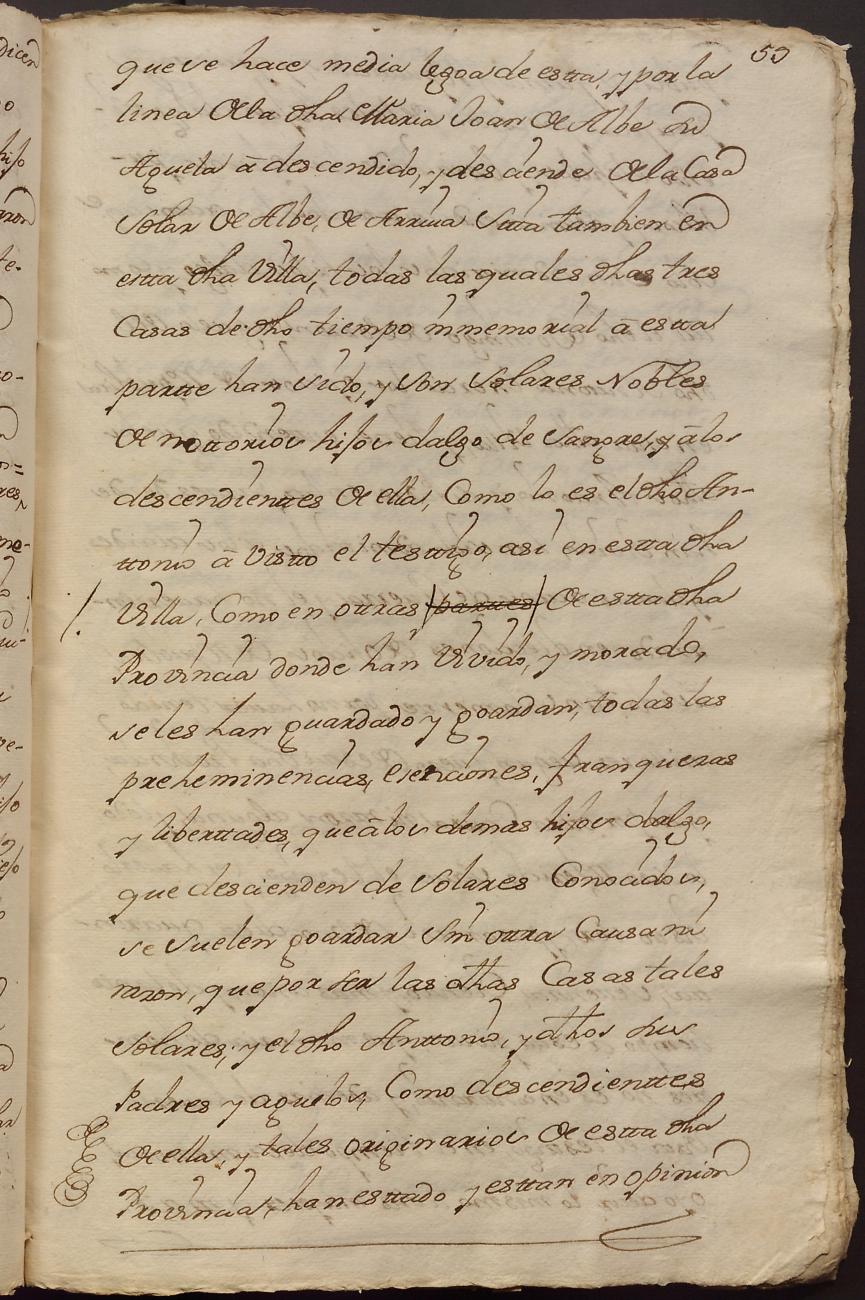 53
que se hace media legoa de estta, y por la
linea de la dha Maria Joan de Albe su
Aguela ā descendido, y desciende de la Casa
Solar de Albe, de Arriva Sitta tambien en
estta dha Villa, todas las quales dhas tres
Casas de dho tiempo inmemorial ā estta
partte han sido, y son Solares Nobles
de nottorios hijos dalgo de Sangre, y ā los
descendienttes de ella, Como lo es el dho An-
ttonio ā Vistto el testtigo, asi en estta dha
Villa, Como en ottras parttes de estta dha
Provincia donde han Vivido, y morado,
se les han guardado y goardan, todas las
preheminencias, esenciones, franquezas
y liberttades, que ā los demas hijos dalgo,
que descienden de Solares Conocidos,
se suelen goardar sin ottra Causa ni
razon, que por ser las dthas Casas tales
Solares, y el dho Anttonio, y dthos sus
Padres y aguelos, Como descendienttes
de ella, y tales originarios de estta dha
Provincia, han esttado y esttan en opinion